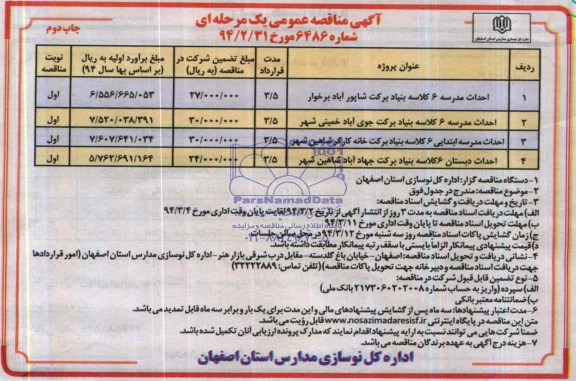 آگهی مناقصه عمومی یک مرحله ای
شماره ۶۴۸۶ مورخ ۹۴/۲/۳۱
چاپ دوم
ردیف
عنوان پروژه
مدت قرارداد
مبلغ تضمین شرکت در مناقصه (به ریال)
مبلغ برآورد اولیه به ریال (بر اساس بها سال ۹۴)
نوبت مناقصه
۱ احداث مدرسه ۶ کلاسه بنیاد برکت شاپور آباد برخوار ۳/۵ ۲۷/۰۰۰/۰۰۰ ۶/۵۵۶/۶۶۵/۰۵۳ اول
۲ احداث مدرسه ۶ کلاسه بنیاد برکت جوی آباد خمینی شهر ۳/۵ ۳۰/۰۰۰/۰۰۰ ۷/۵۲۰/۰۳۸/۳۹۱ اول
۳ احداث مدرسه ابتدایی ۶ کلاسه بنیاد برکت خانه کارگر شاهین شهر ۳/۵ ۳۰/۰۰۰/۰۰۰ ۷/۶۰۷/۶۴۱/۰۳۴ اول
۴ احداث دبستان ۶ کلاسه بنیاد برکت جهاد آباد شاهین شهر ۳/۵ ۲۴/۰۰۰/۰۰۰ ۵/۷۶۲/۶۹۱/۱۶۴ اول
۱- دستگاه مناقصه گزار: اداره کل نوسازی استان اصفهان
۲- موضوع مناقصه: مندرج در جدول فوق
۳- تاریخ و مهلت دریافت و گشایش اسناد مناقصه:
الف) مهلت دریافت اسناد مناقصه به مدت ۳ روز از انتشار آگهی از تاریخ ۹۴/۳/۲ لغایت پایان وقت اداری مورخ ۹۴/۳/۴
ب) مهلت تحویل اسناد مناقصه تا پایان وقت اداری مورخ ۹۴/۳/۱۱
ج) زمان گشایش پاکات اسناد مناقصه روز سه شنبه مورخ ۹۴/۳/۱۲ در محل سالن جلسات
د) قیمت پیشنهادی پیمانکار الزاما بایستی با سقف رتبه پیمانکار مطابقت داشته باشد.
۴- نشانی دریافت و تحویل اسناد مناقصه: اصفهان- خیابان باغ گلدسته- مقابل درب شرقی بازار هنر- اداره کل نوسازی مدارس استان اصفهان (امور قراردادها جهت دریافت اسناد مناقصه و دبیرخانه جهت تحویل پاکات مناقصه) (تلفن تماس: ۳۲۲۲۲۸۸۹)
۵- نوع تضمین قابل قبول شرکت در مناقصه:
الف) سپرده (واریز به حساب شماره ۲۱۷۳۰۶۰۲۰۲۰۰۸ بانک ملی)
ب) ضمانتنامه معتبر بانکی
۶- مدت اعتبار پیشنهادها: سه ماه پس از گشایش پیشنهادهای مالی و این مدت برای یک بار و برابر سه ماه قابل تمدید می باشد.
متن این مناقصه در پایگاه اینترنتی www.nosazimadaresisf.ir قابل رؤیت می باشد.
ضمنا شرکت هایی می توانند نسبت به ارایه پیشنهاد اقدام نمایند که مدارک پرونده ارزیابی آنان تکمیل شده باشد.
۷- هزینه درج آگهی به عهده برندگان مناقصه می باشد.
اداره کل نوسازی مدارس استان اصفهان
ParsNamadData